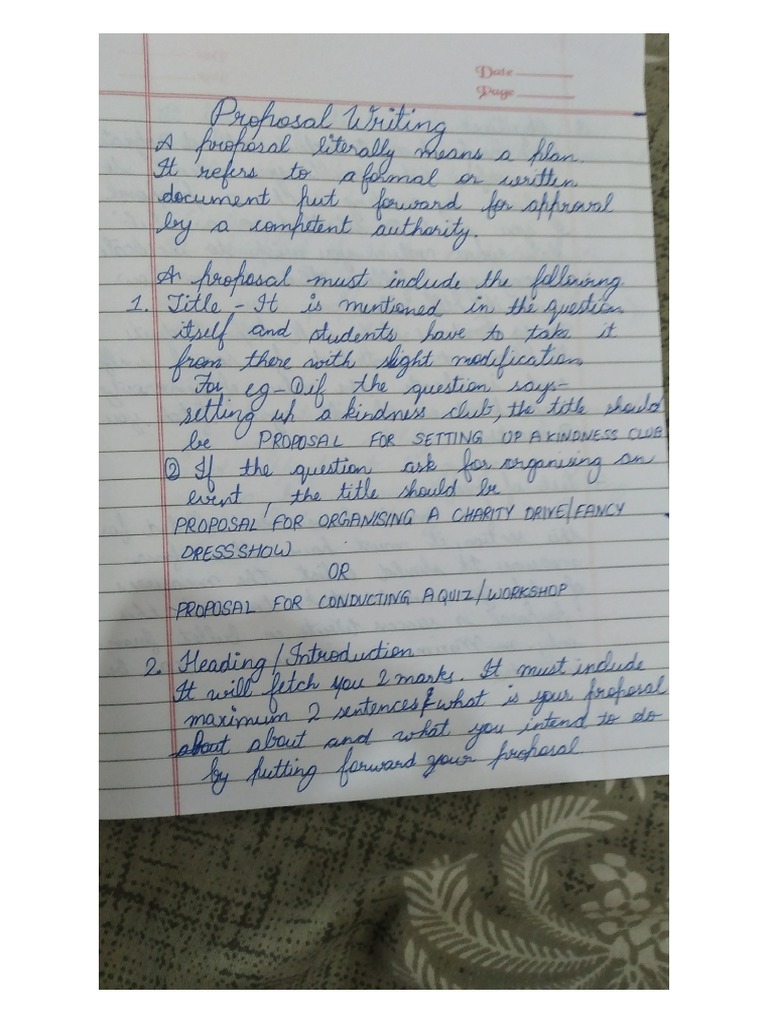 Date
Page
Proposal Writing
A proposal literally means a plan.
It refers to a formal or written
document put forward for approval
by a competent authority.
A proposal must include the following
1. Title - It is mentioned in the question
itself and students have to take it
from there with slight modification
For eg - ① if the question says -
setting up a kindness club, the title should
be PROPOSAL FOR SETTING UP A KINDNESS CLUB
② If the question ask for organising an
event, the title should be
PROPOSAL FOR ORGANISING A CHARITY DRIVE/FANCY
DRESS SHOW
OR
PROPOSAL FOR CONDUCTING A QUIZ/WORKSHOP
2. Heading/Introduction
It will fetch you 2 marks. It must include
maximum 2 sentences & what is your proposal
about and what you intend to do
by putting forward your proposal.